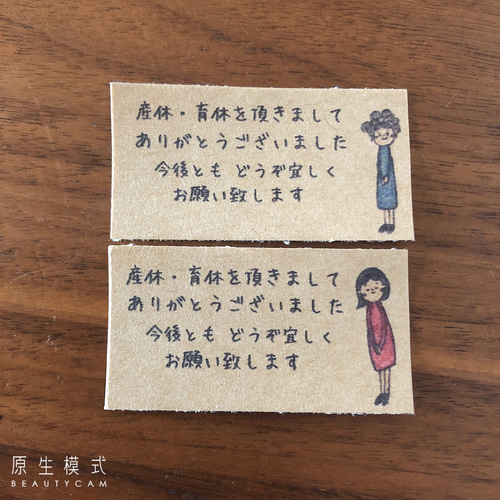 産休・育休を頂きまして
ありがとうございました
今後とも どうぞ宜しく
お願い致します
産休・育休を頂きまして
ありがとうございました
今後とも どうぞ宜しく
お願い致します
原生模式
BEAUTYCAM